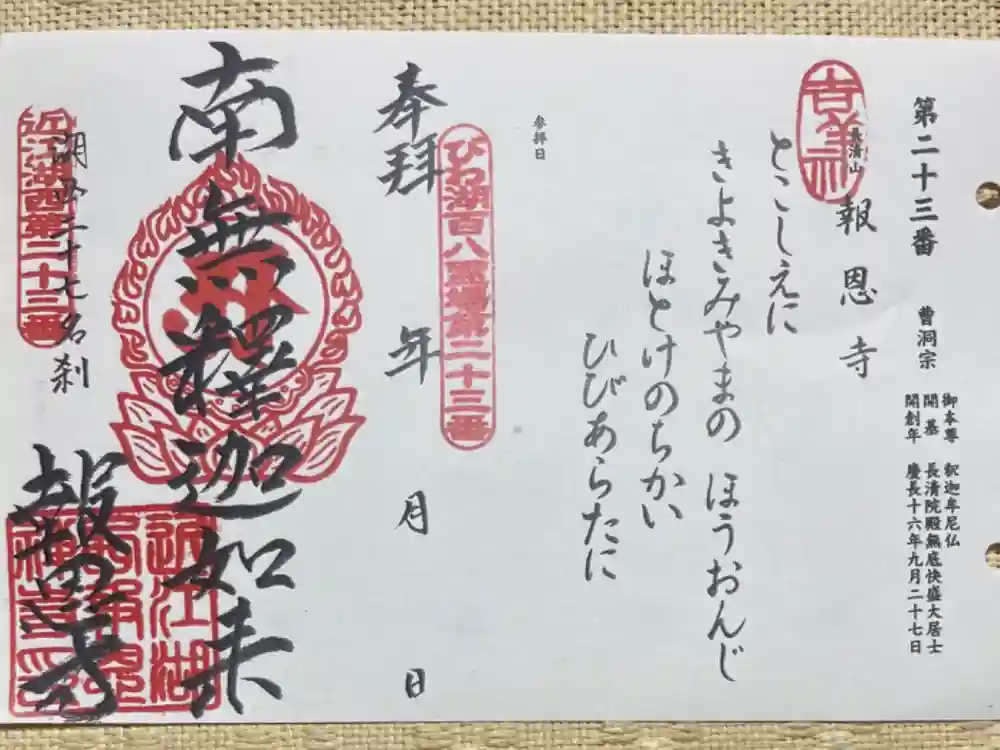 第二十三番 曹洞宗
御本尊 釈迦牟尼仏
開基 長清院殿無底快盛大居士
開創年 慶長十六年九月二十七日
長清山
報恩寺
とこしえに
きよきみやまの ほうおんじ
ほとけのちかい
ひびあらたに
参拝日
びわ湖百八霊場第二十三番
奉拝 年 月 日
南無釋迦如来
湖西二十七名刹
近江湖西第二十三番
報恩寺